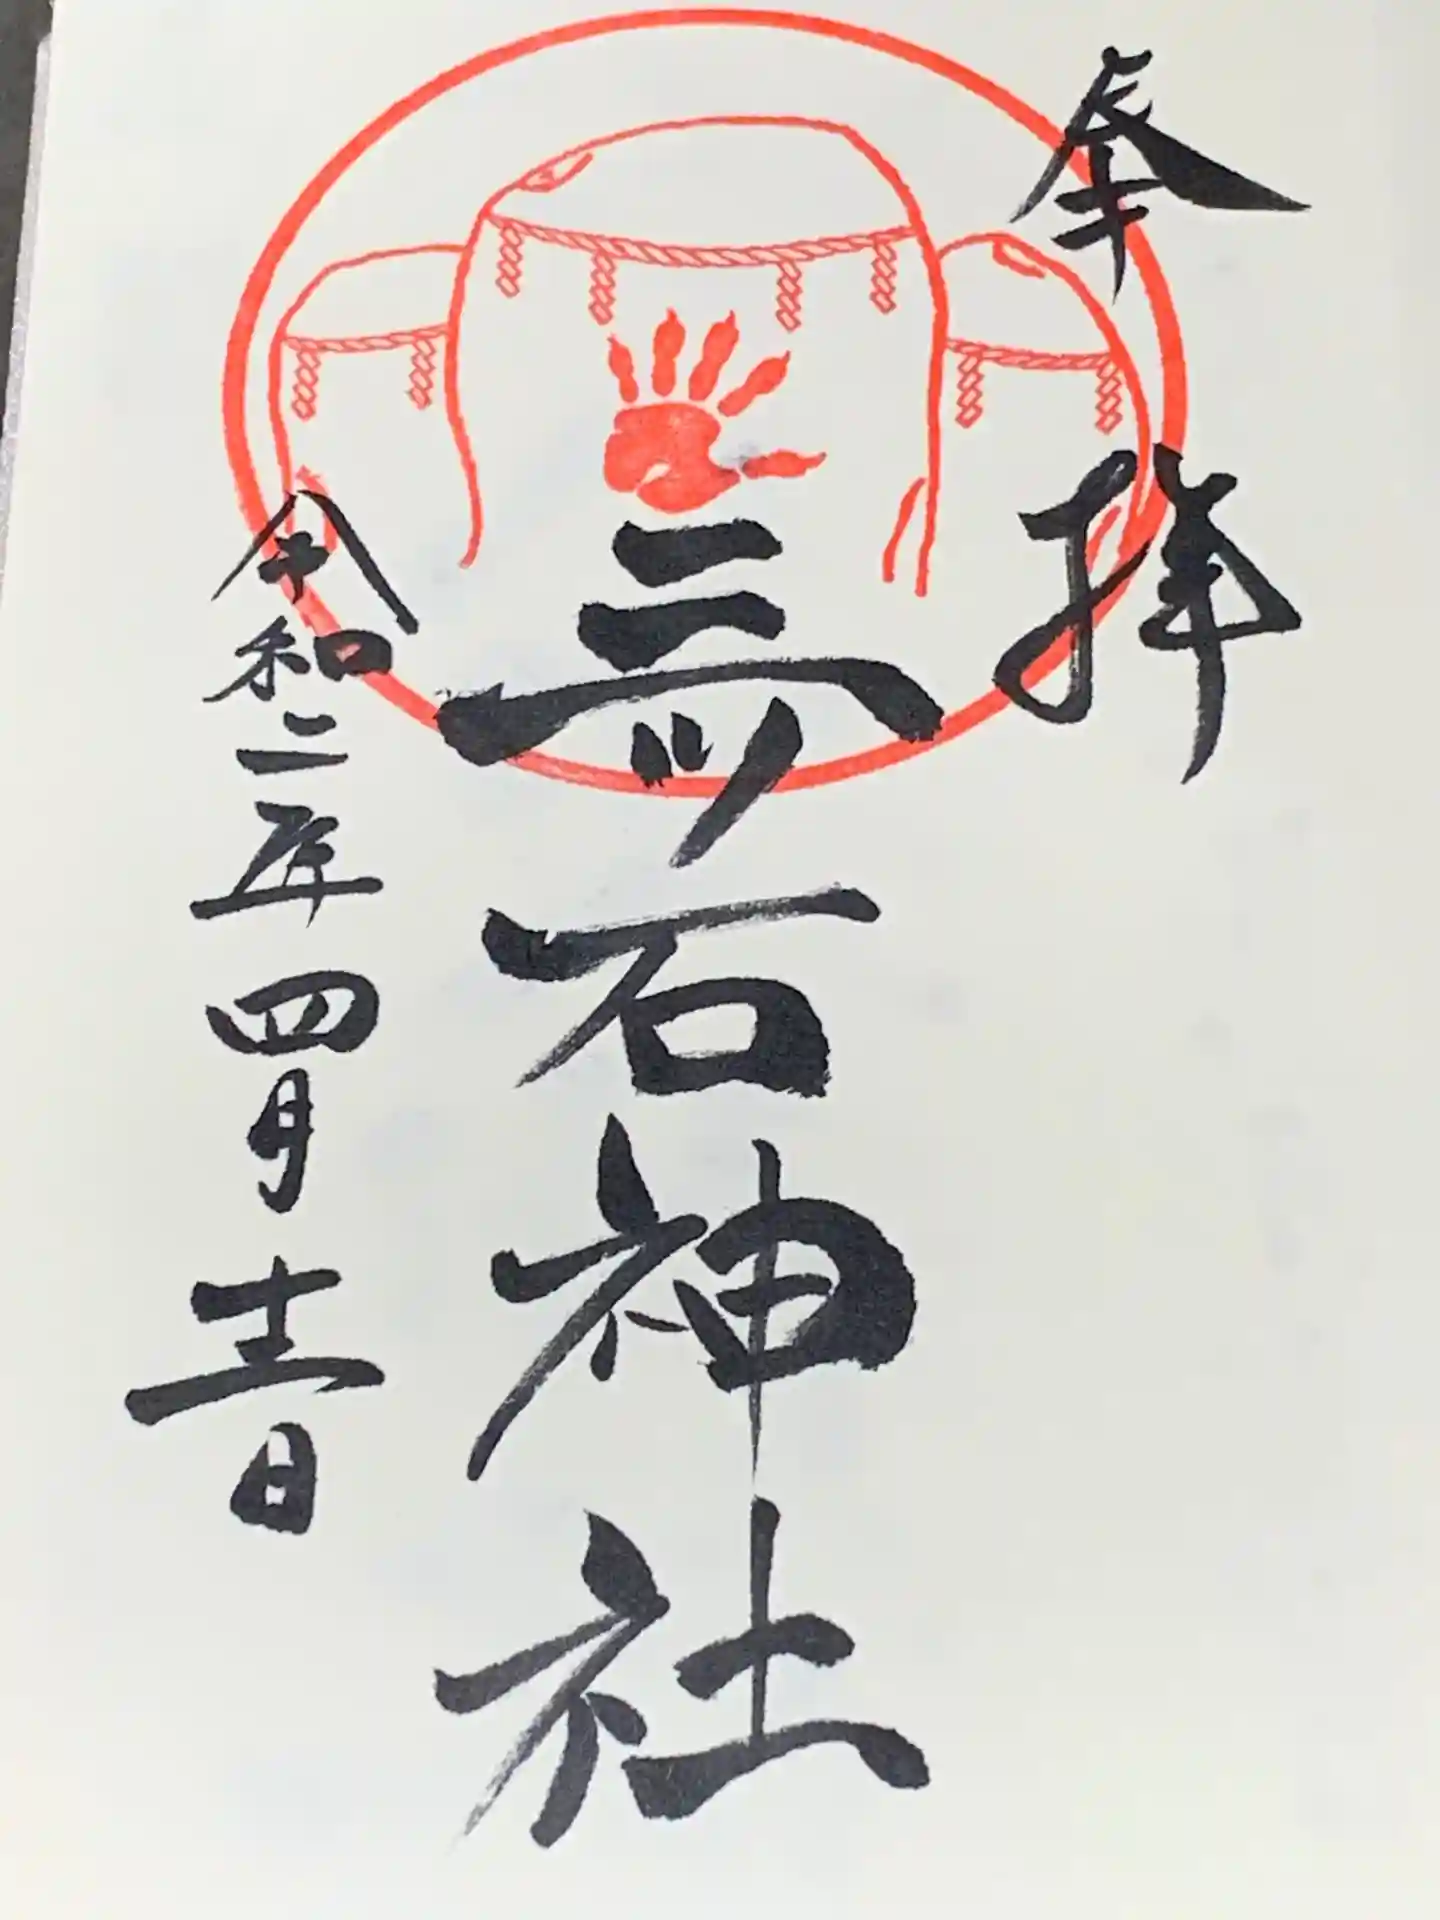 奉拝
三ツ石神社
令和二年四月十三日